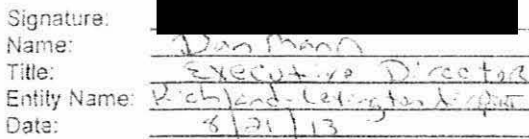 Signature:
Name: Dan Mann
Title: Executive Director
Entity Name: Richland-Lexington Airport
Date: 8/21/13